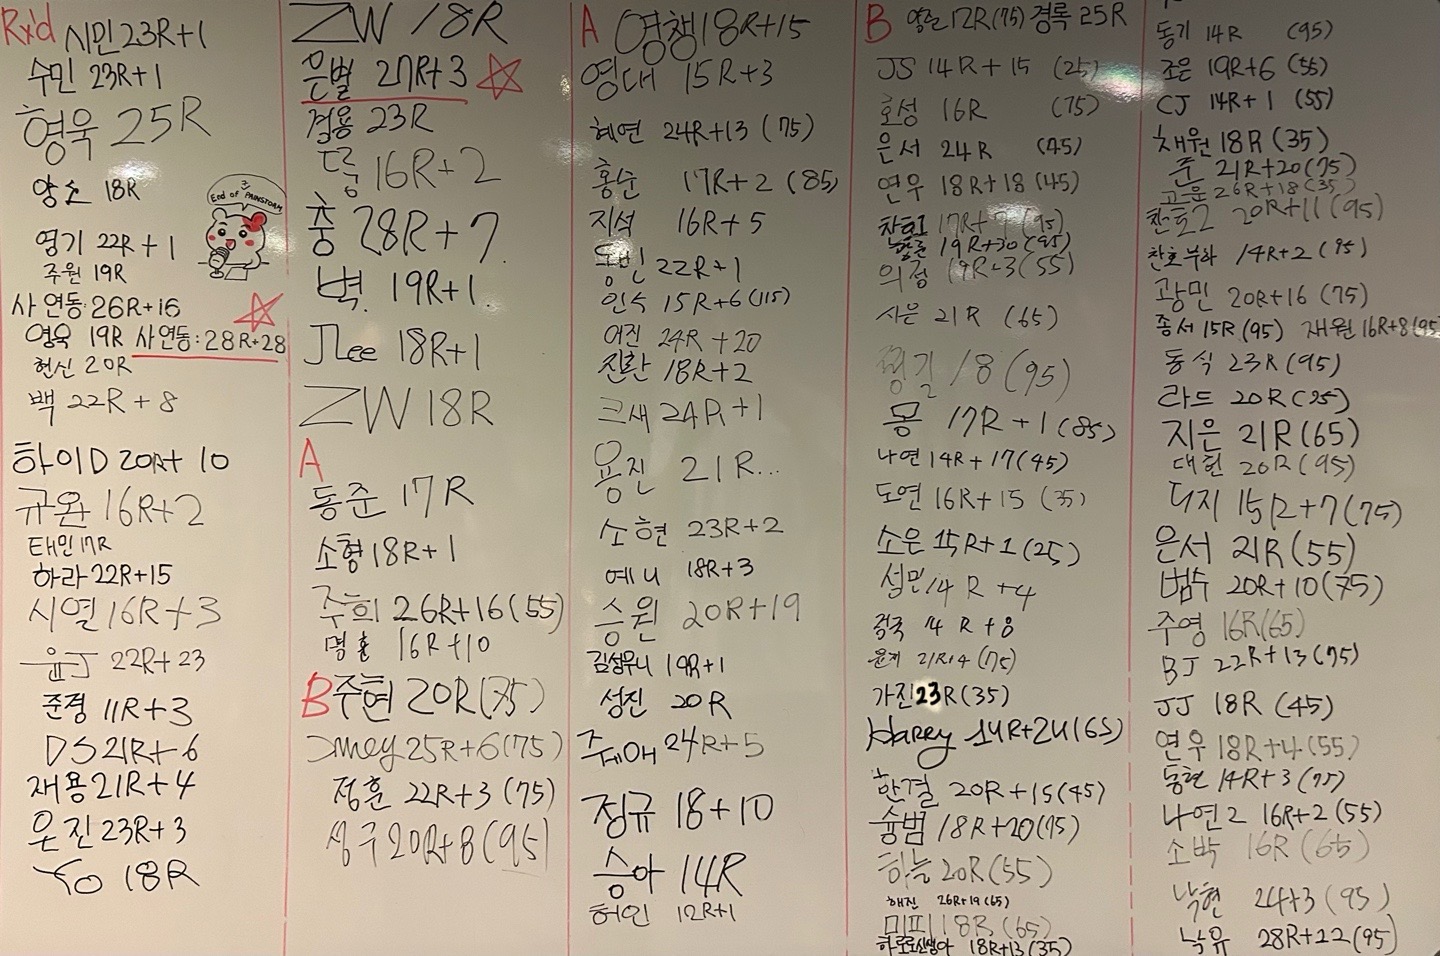 Rx'd 시민 23R+1
수민 23R+1
형욱 25R
양소 18R
End of PAINSTORM
영기 22R+1
주원 19R
사 연동: 26R+16
영욱 19R 사연동: 28R+28
현신 20R
백 22R+8
하이D 20R+10
규완 16R+2
태민 17R
하라 22R+15
시열 16R+3
윤J 22R+23
준정 11R+3
DS 21R+6
재용 21R+4
은진 23R+3
YO 18R
ZW 18R
은별 27R+3
결용 23R
16R+2
충 28R+7
벽 19R+1
JLee 18R+1
ZW 18R
A
동준 17R
소형 18R+1
주희 26R+16 (55)
명훈 16R+10
B 주현 20R (75)
25R+6 (75)
정훈 22R+3 (75)
성구 20R+8 (95)
A 영챙 18R+15
영대 15R+3
혜연 24R+13 (75)
홍순 17R+2 (85)
지석 16R+5
동빈 22R+1
인수 15R+6 (115)
어진 24R+20
진환 18R+2
크새 24R+1
용진 21R...
소현 23R+2
예니 18R+3
승원 20R+19
김성우니 19R+1
성진 20R
쥬에이 24R+5
정규 18+10
승아 14R
허인 12R+1
B 12R (75) 경록 25R
JS 14R+15 (25)
호성 16R (75)
은서 24R (45)
연우 18R+18 (45)
찬호1 17R+7 (95)
19R+30 (95)
의정 19R+3 (55)
사은 21R (65)
평길 18 (95)
몽 17R+1 (85)
나연 14R+17 (45)
도연 16R+15 (35)
소은 15R+1 (25)
석민 14R+4
정국 14R+8
윤지 21R+4 (75)
가진 23R (35)
Harry 14R+24 (65)
한결 20R+15 (45)
슝범 18R+20 (75)
하늘 20R (55)
해진 26R+19 (65)
미피 18R (65)
18R+13 (35)
동기 14R (95)
조은 19R+6 (55)
CJ 14R+1 (55)
채원 18R (35)
준 21R+20 (75)
고운 26R+18 (35)
찬호2 20R+11 (95)
찬호부하 14R+2 (95)
광민 20R+16 (75)
종서 15R (95) 재원 16R+8 (95)
동식 23R (95)
라드 20R (95)
지은 21R (65)
대현 20R (95)
더지 15R+7 (75)
은서 21R (55)
범수 20R+10 (75)
주영 16R (65)
BJ 22R+13 (75)
JJ 18R (45)
연우 18R+4 (55)
동현 14R+3 (75)
나연2 16R+2 (55)
소박 16R (65)
낙현 24+3 (95)
낙유 28R+22 (95)